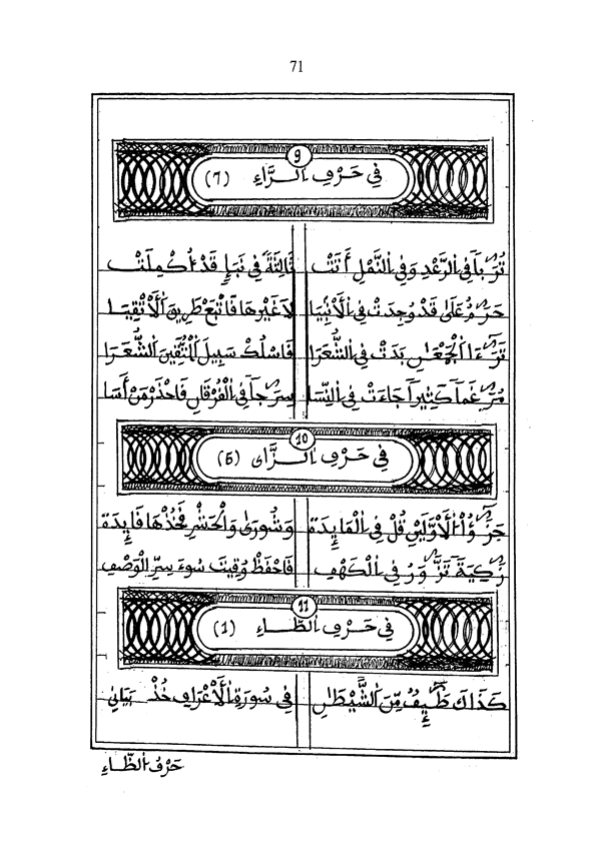 71
9
في حَرْفِ الـرَّاءِ (7)
تُرَٰباً في الرَّعْدِ وَفي النَّمْلِ أَتَتْ ثَالِثَةٌ في نَبَإٍ قَدْ أُكْمِلَتْ
حَرَٰمٌ عَلَىٰ قَدْ وُجِدَتْ في الْأَنْبِيَا لَا غَيْرِهَا فَاتْبَعْ طَرِيقَ الْأَتْقِيَا
تَرَٰءَا الْجَمْعَٰنِ بَدَتْ في الشُّعَرَا فَاسْلُكْ سَبِيلَ الْمُتَّقِينَ الشُّعَرَا
مُرَٰغَماً كَثِيراً جَاءَتْ في النِّسَا سِرَٰجاً في الْفُرْقَانِ فَاحْذَرْ مَنْ أَسَا
10
في حَرْفِ الـزَّاي (5)
جَزَٰٓؤُا الْأَوَّلَيْنِ قُلْ في الْمَايِٕدَة وَشُورَىٰ وَالْحَشْرِ فَخُذْهَا فَايِٕدَة
زَٰكِيَةً تَزَّٰوَرُ في الْكَهْفِ فَاحْفَظْ وُقِيتَ سُوءَ سِرِّ الْوَصْفِ
11
في حَرْفِ الطَّـاءِ (1)
كَذَاكَ طَٰٓئِفٌ مِّنَ الشَّيْطَٰنِ في سُورَةِ الْأَعْرَافِ خُذْ بَيَانِي
حَرْفُ الظَّـاءِ